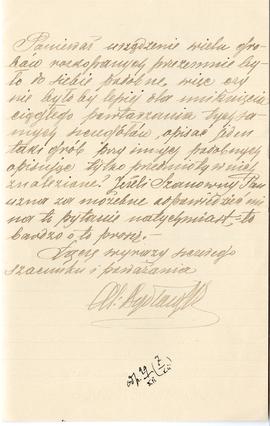 Ponieważ urządzenie wielu gro-
bów rozkopanych przezemnie by-
ło do siebie podobne, więc czy
nie byłoby lepiej dla uniknięcia
ciągłego powtarzania tych sa-
mych szczegółów, opisać jeden
taki grób, przy innych podobnych
opisując tylko przedmioty w nich
znalezione. Jeżeli Szanowny Pan
uzna za możebne odpowiedzieć mi
na to pytanie natychmiast, to
bardzo o to proszę.
Łączę wyrazy
szacunku i poważania